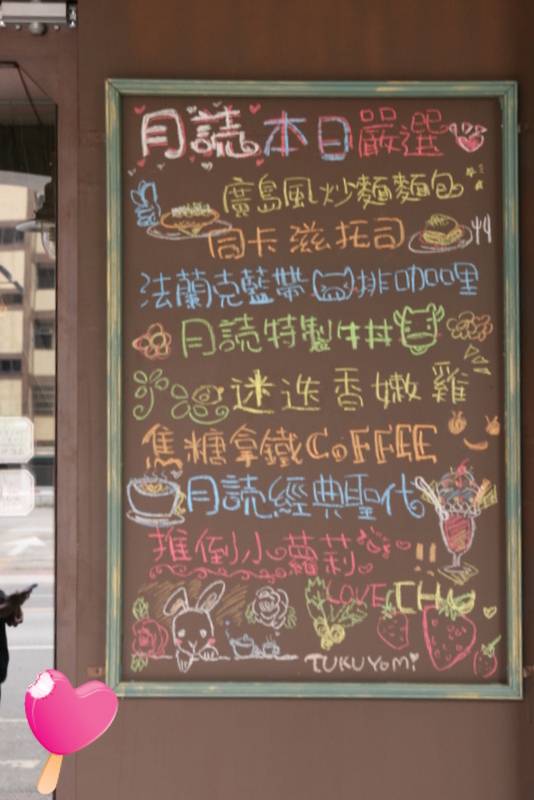 月読本日嚴選
廣島風炒麵麵包
同卡滋托司
法蘭克藍帶排咖哩
月読特製牛丼
迷迭香嫩雞
焦糖拿鐵COFFEE
月読經典聖代
推倒小蘿莉
LOVE
TUKUYOMI